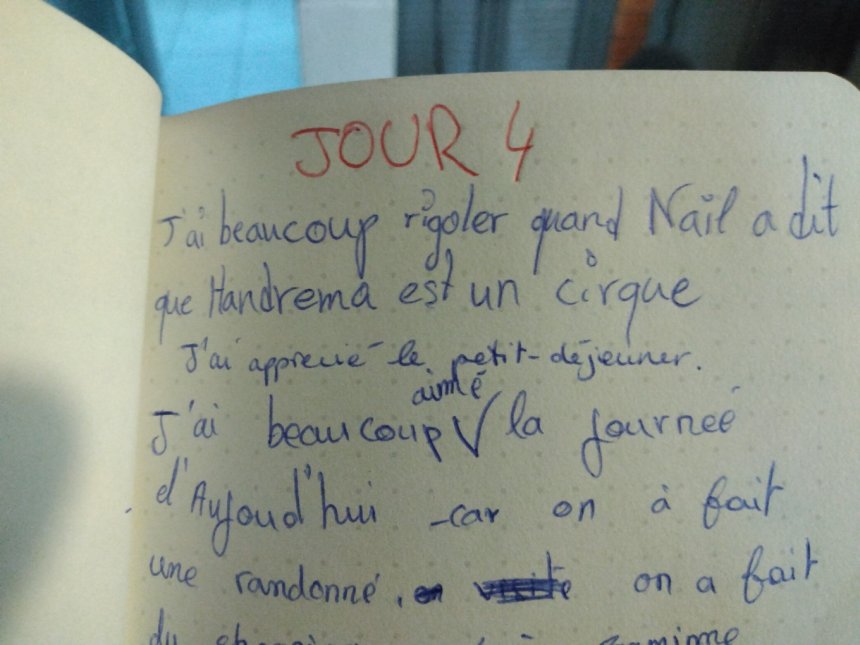 JOUR 4
J'ai beaucoup rigoler quand Naïl a dit
que Handrema est un cirque
J'ai apprecié le petit-déjeuner.
J'ai beaucoup aimé la journeé
d'Aujoud'hui - car on à fait
une randonné, on a fait
du